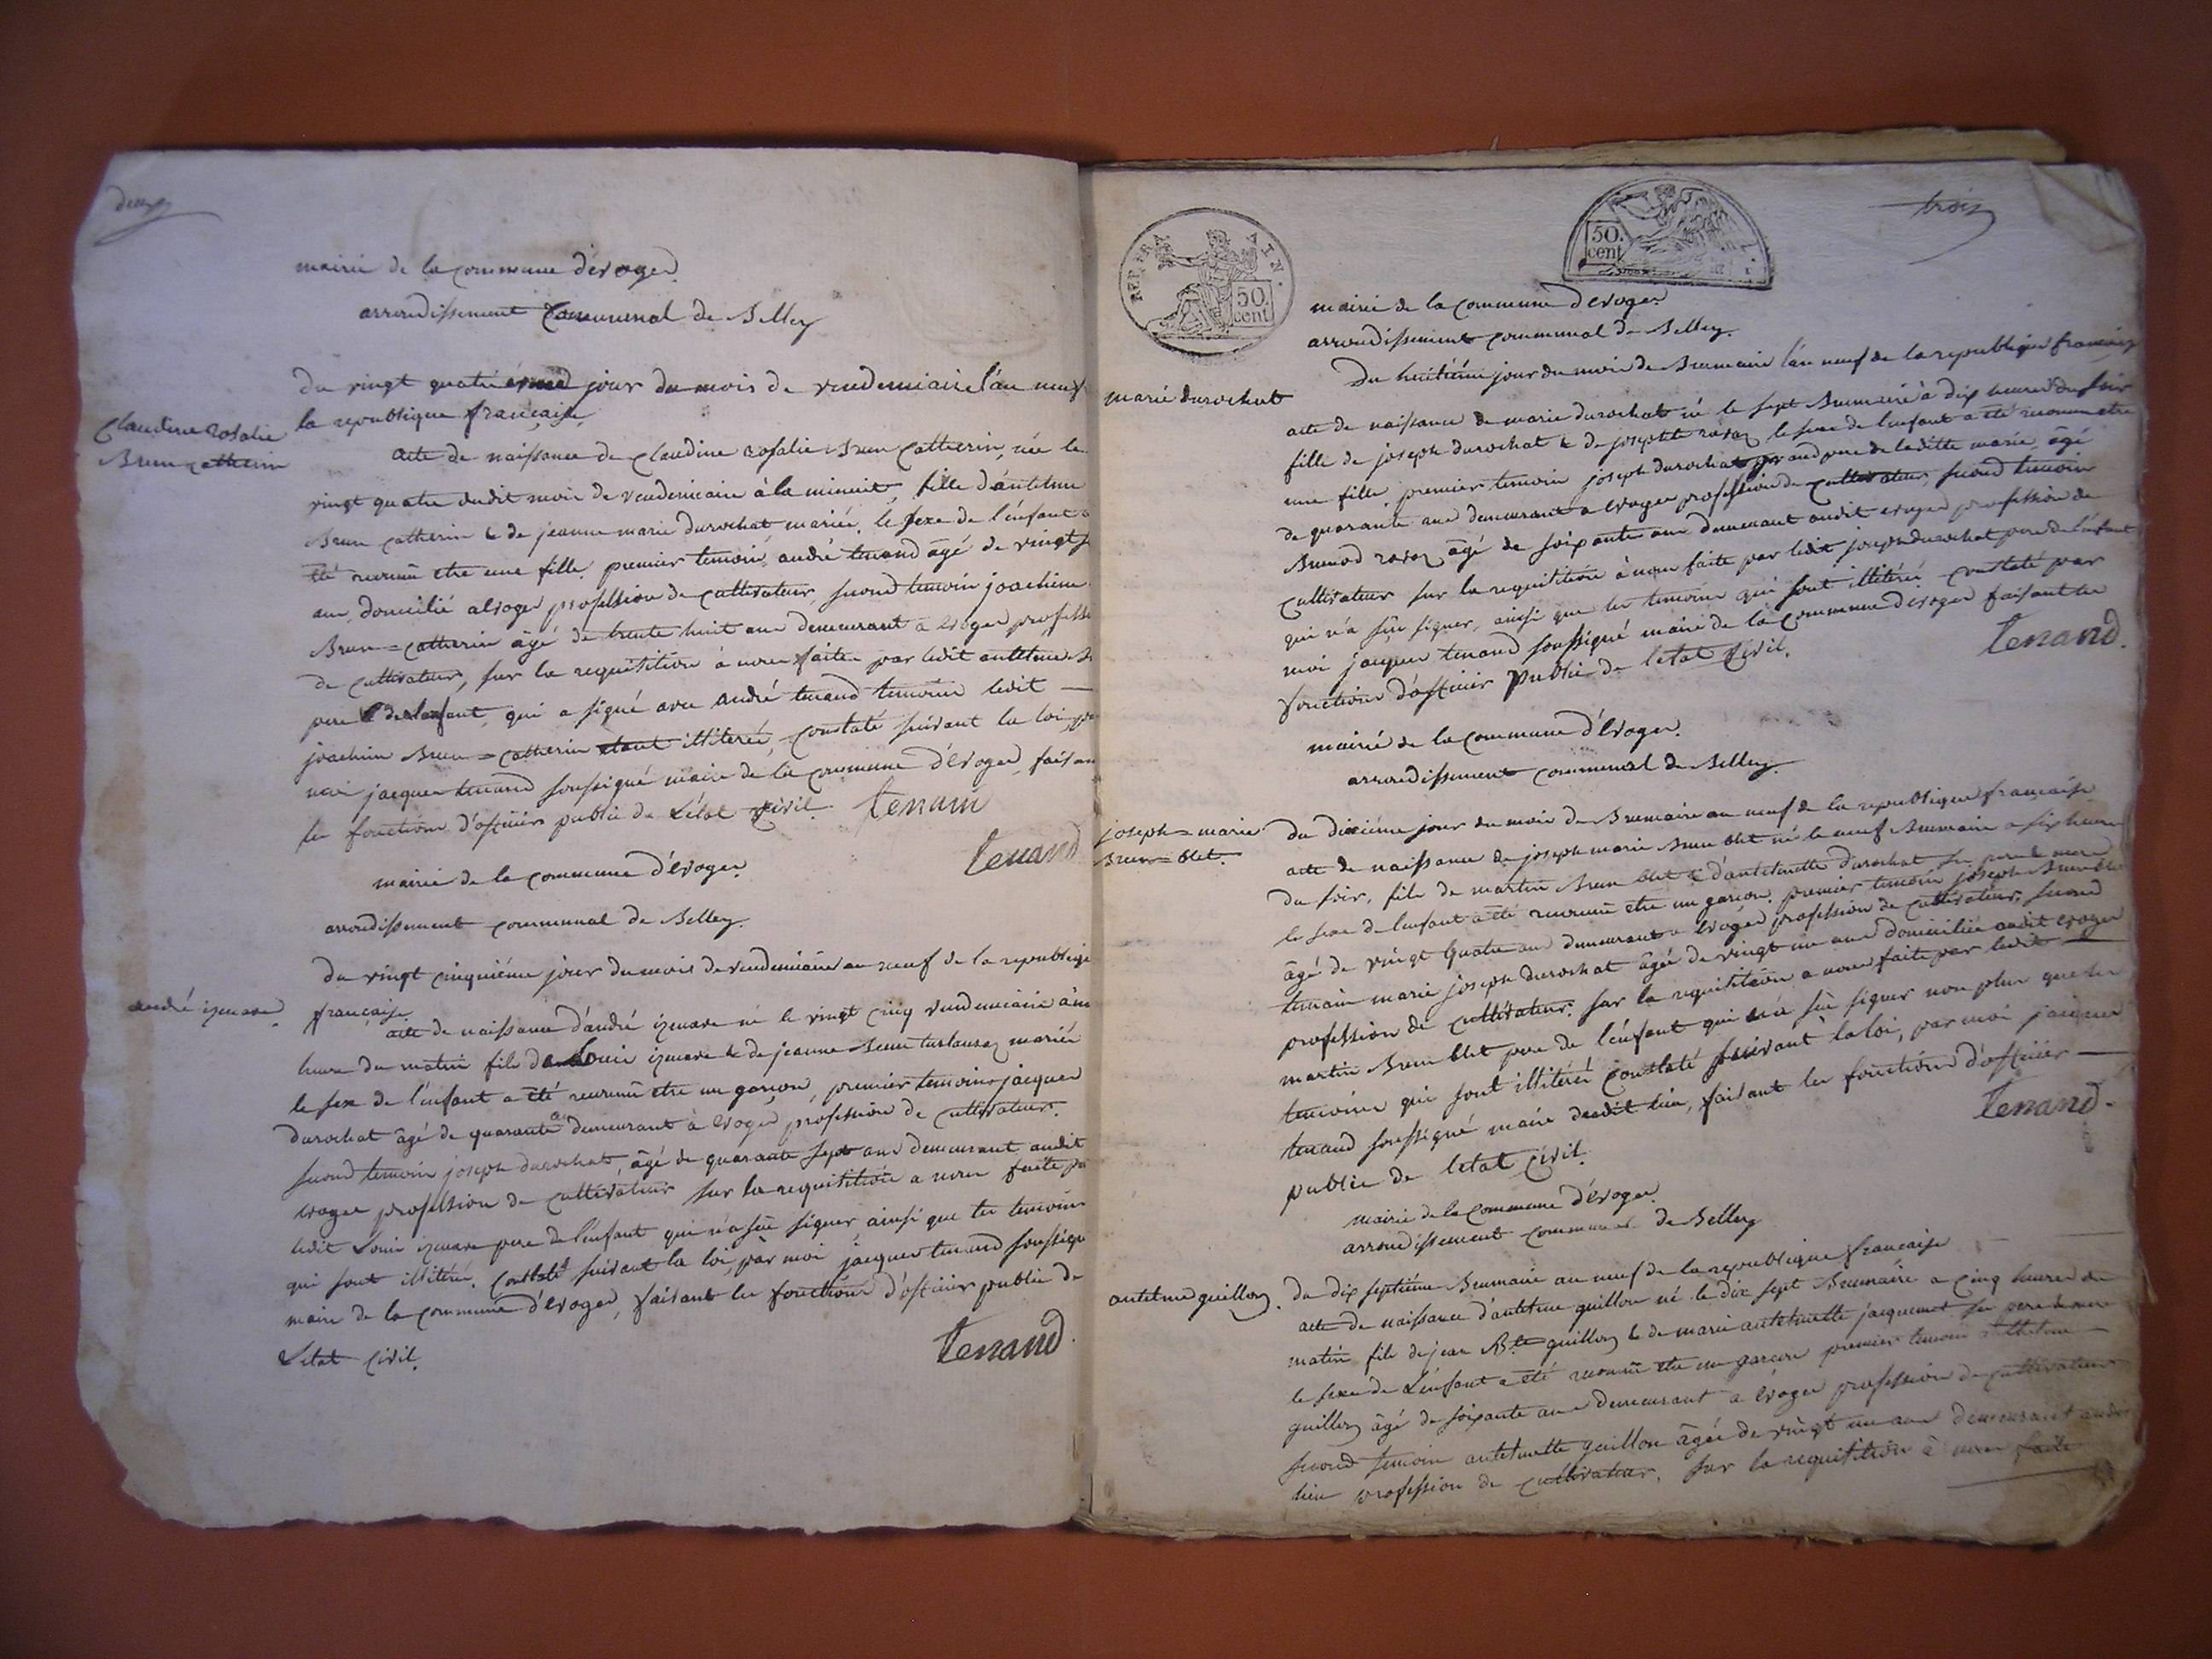 deux
mairie de la commune d'évoges
arrondissement communal de Belley
du vingt quatrième jour du mois de vendemiaire l'an neuf
la republique française
Claudine Rosalie
Brun catherin
acte de naissance de claudine rosalie Brun Catherin, née le
vingt quatre dudit mois de vendemiaire à la minuit, fille d'antelme
Brun catherin & de jeanne marie durochat mariée. le sexe de l'enfant a
été reconnu etre une fille. premier temoin, andré tenand âgé de vingt
ans, domicilié a evoges profession de cultivateur, second temoin joachim
Brun=catherin âgé de trente huit ans demeurant a evoges professi
de cultivateur, sur la requisition à nous faitte par ledit antelme B
pere de l'enfant, qui a signé avec andré tenand temoin ledit —
joachim Brun=catherin etant illiteré, constaté suivant la loi, par
moi jacques tenand soussigné maire de la commune d'évoges, faisan
les fonctions d'officier public de l'état civil. tenand
tenand
mairie de la commune d'évoges
arrondissement communal de Belley.
du vingt cinquiéme jour du mois de vendemiaire an neuf de la republiqe
andré
française
acte de naissance d'andré né le vingt cinq vendemiaire à
heure du matin fils de Louis & de jeanne Brun mariés
le sexe de l'enfant a été reconnu etre un garçon, premier temoin jacques
durochat âgé de quarante ans demeurant à evoges profession de cultivateur.
second temoin joseph durochat, âgé de quarante sept ans demeurant audit
evoges profession de cultivateur sur la requisition a nous faite par
ledit Louis pere de l'enfant qui n'a sçu signer, ainsi que les temoins
qui sont illiteré. constaté suivant la loi, par moi jacques tenand soussigné
maire de la commune d'évoges, faisant les fonctions d'officier public de
l'etat civil.
tenand.
REP. FRA
50.
cent
50.
cent
trois
mairie de la commune d'évoges
arrondissement communal de Belley.
Du huitiéme jour du mois de Brumaire l'an neuf de la republique française
marie durochat
acte de naissance de marie durochat né le sept Brumaire à dix heures du soir
fille de joseph durochat & de josephte ravaz le sexe de l'enfant a été reconnu etre
une fille, premier temoin joseph durochat grand pere de laditte marie, âgé
de quarante ans demeurant a evoges profession de cultivateur, second temoin
ravaz âgé de soixante ans demeurant audit evoges profession de
cultivateur sur la requisition à nous faite par ledit joseph durochat pere de l'enfant
qui n'a sçu signer, ainsi que les temoins qui sont illiteré constaté par
moi jacques tenand soussigné maire de la commune d'evoges faisant les
fonctions d'officier public de l'etat civil.
tenand.
mairie de la commune d'évoges.
arrondissement communal de Belley.
joseph=marie
Brun=blet.
du dixiéme jour du mois de Brumaire an neuf de la republique française
acte de naissance de joseph marie Brun blet né le neuf Brumaire a six heures
du soir, fils de martin Brun blet & d'antelmette durochat ses pere & mere
le sexe de l'enfant a été reconnu etre un garçon. premier temoin joseph Brun blet
âgé de vingt quatre ans demeurant a evoges profession de cultivateur, second
temoin marie joseph durochat âgée de vingt un ans domiciliée audit evoges
profession de cultivateur. sur la requisition a nous faite par ledit —
martin Brun blet pere de l'enfant qui n'a sçû signer non plus que les
temoins qui sont illiteré constaté suivant la loi, par moi jacques
tenand soussigné maire dudit lieu, faisant les fonctions d'officier —
public de l'etat civil.
tenand.
mairie de la commune d'évoges.
arrondissement communal de Belley
antelme guillon.
du dix septiéme Brumaire an neuf de la republique française
acte de naissance d'antelme guillon né le dix sept Brumaire a cinq heures du
matin fils de jean Bte guillon & de marie antelmette jacquemet ses pere & mere
le sexe de l'enfant a été reconnu etre un garçon premier temoin anthelme
guillon âgé de soixante ans demeurant a évoges profession de cultivateur
second temoin antelmette guillon âgée de vingt un ans demeurant audit
lieu profession de cultivateur, sur la requisition à nous faite